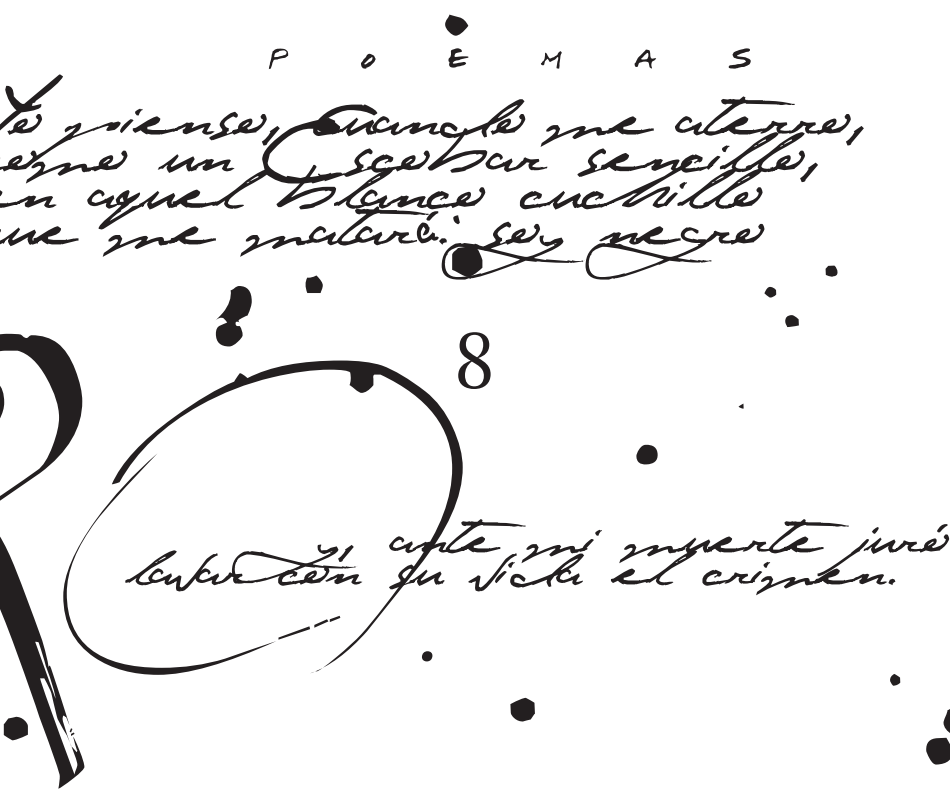 POEMAS
Yo pienso, cuando me aterro,
omo un Escobar sencillo,
en aquel blanco cuchillo
ue me matará: soy negro
8
y, ante mi muerte juré
lavar con su vida el crimen.